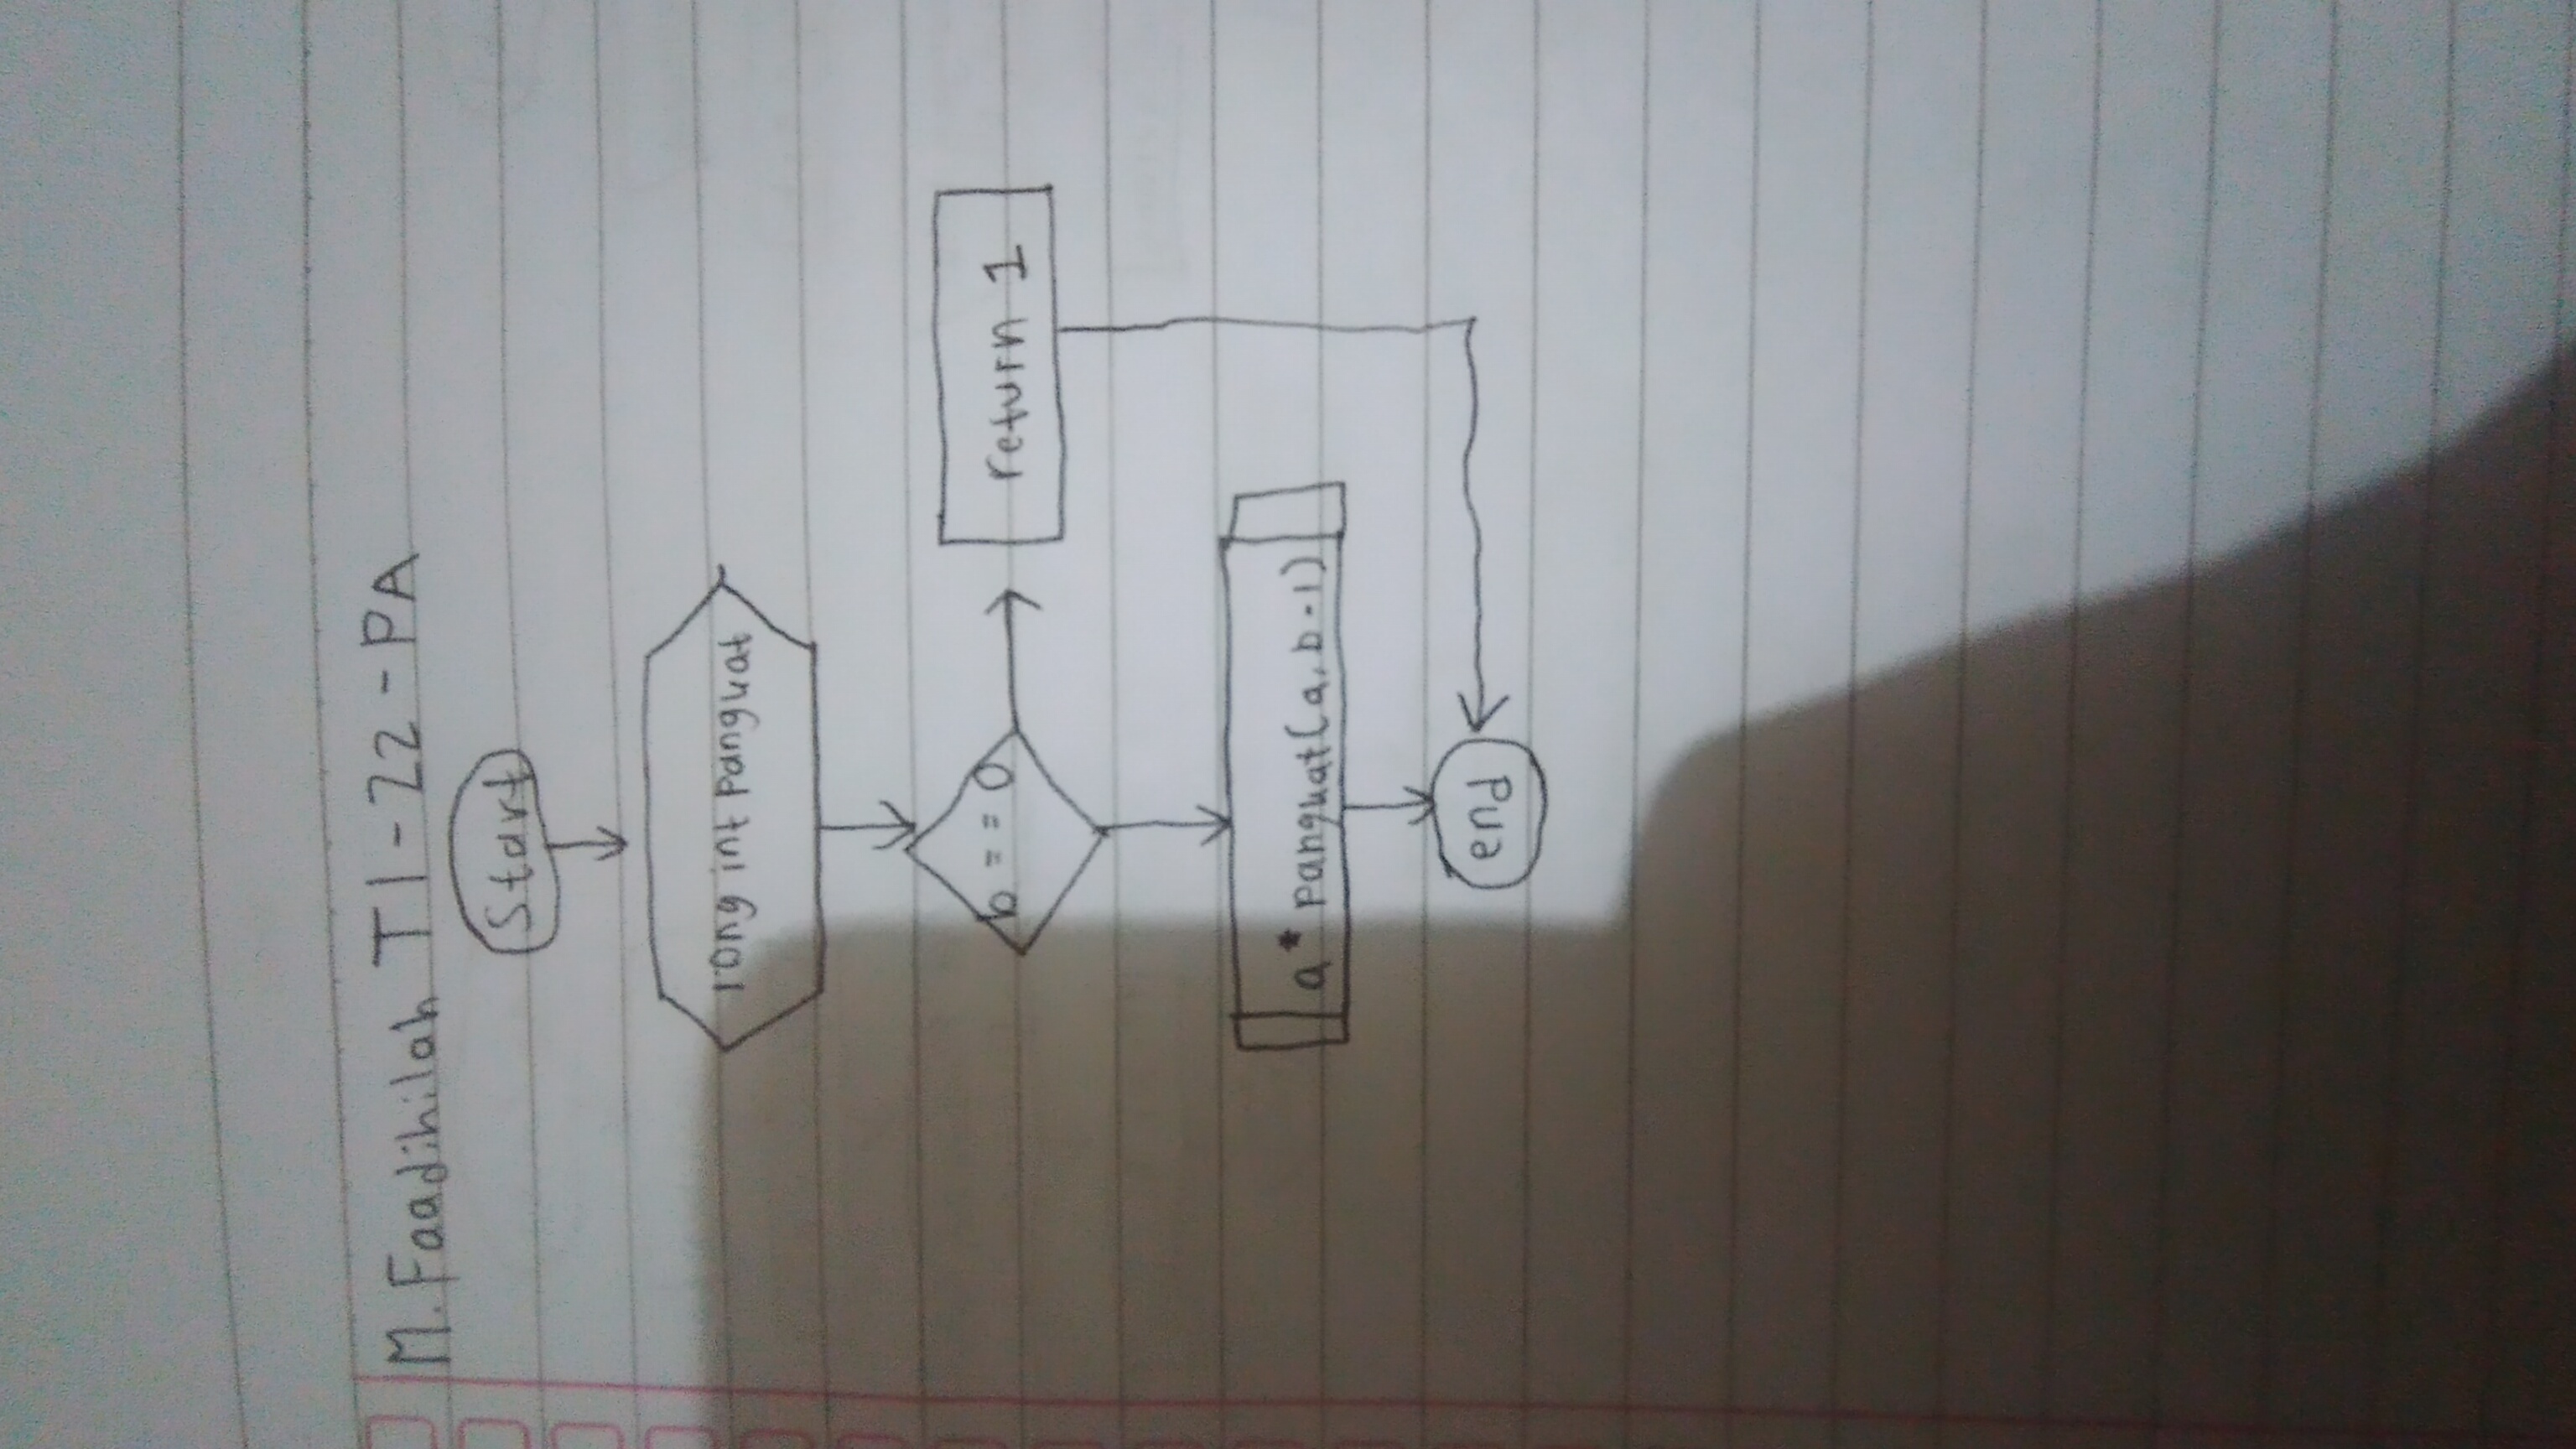 M. Faadihilah TI-22-PA
Start
long int pangkat
b == 0
return 1
a * pangkat(a, b-1)
end